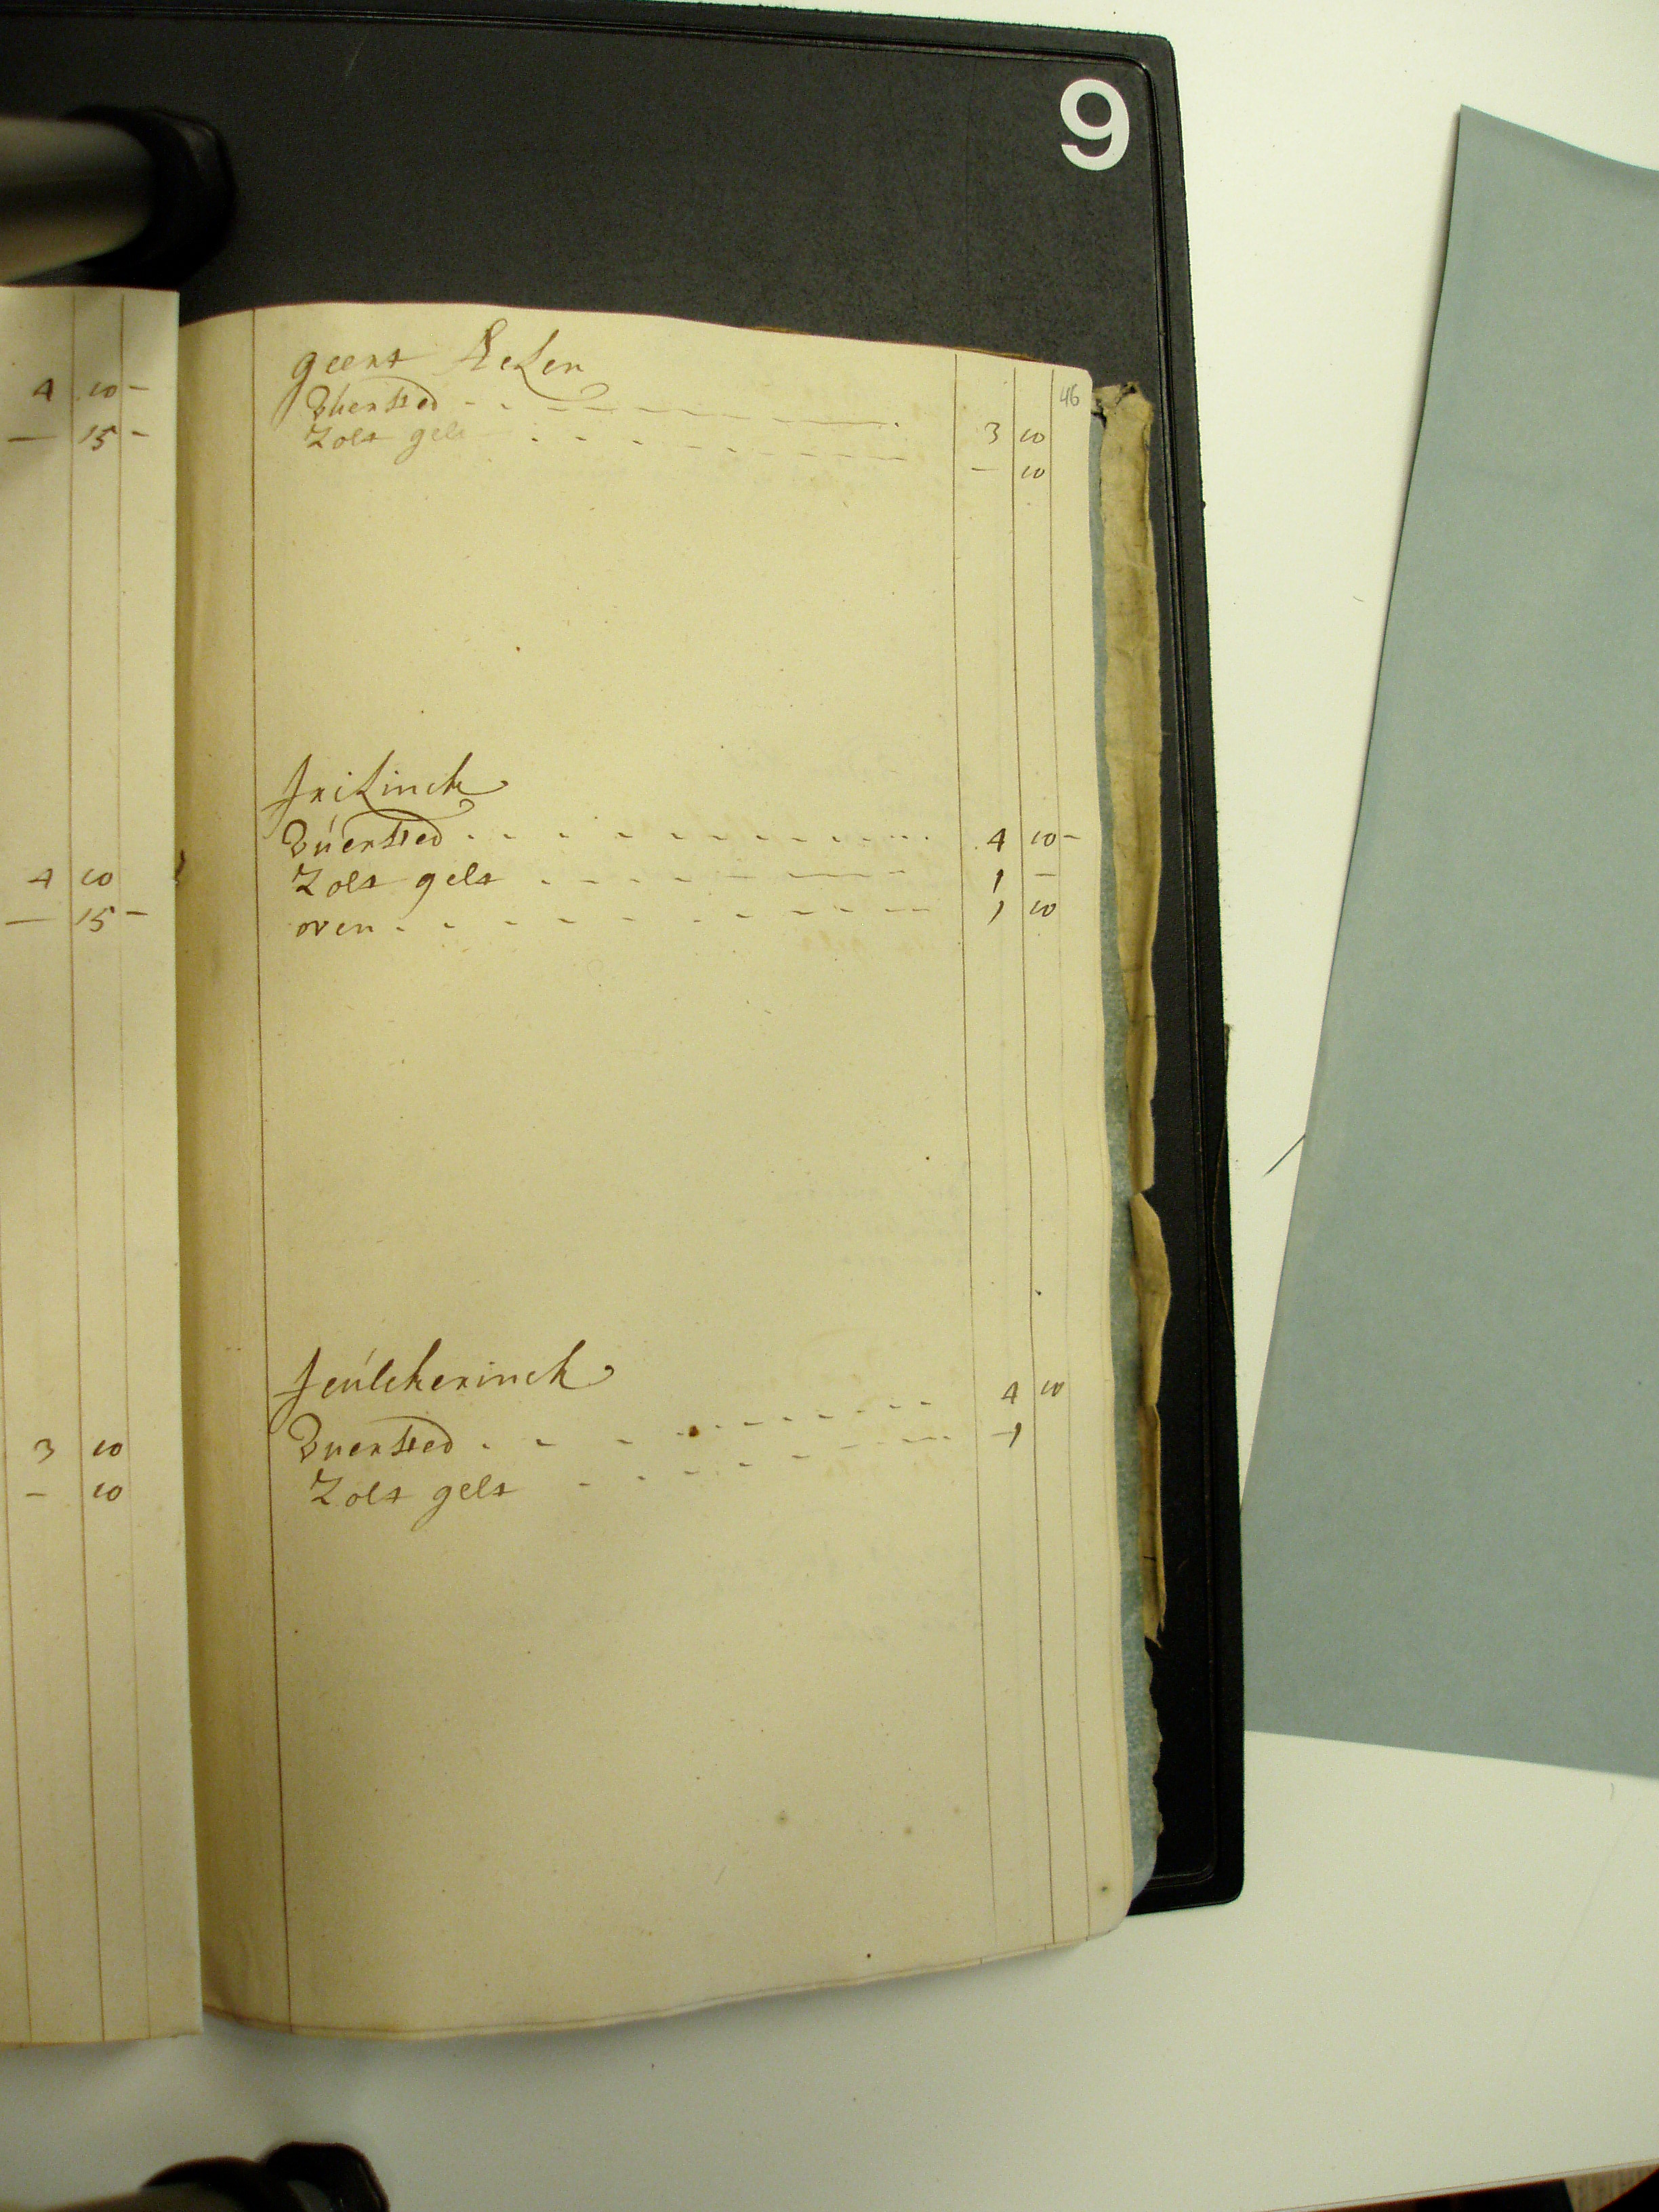 9
46
4 10 -
— 15 -
4 10
— 15 -
3 10
- 10
geert
Vuersted - - - - - - 3 10
Zolt gelt - - - - - - — 10
frikinck
Vúersted - - - - - - 4 10 -
Zolt gelt - - - - - - 1 -
oven - - - - - - 1 10
Vuersted - - - - - - 4 10
Zolt gelt - - - - - - - 1